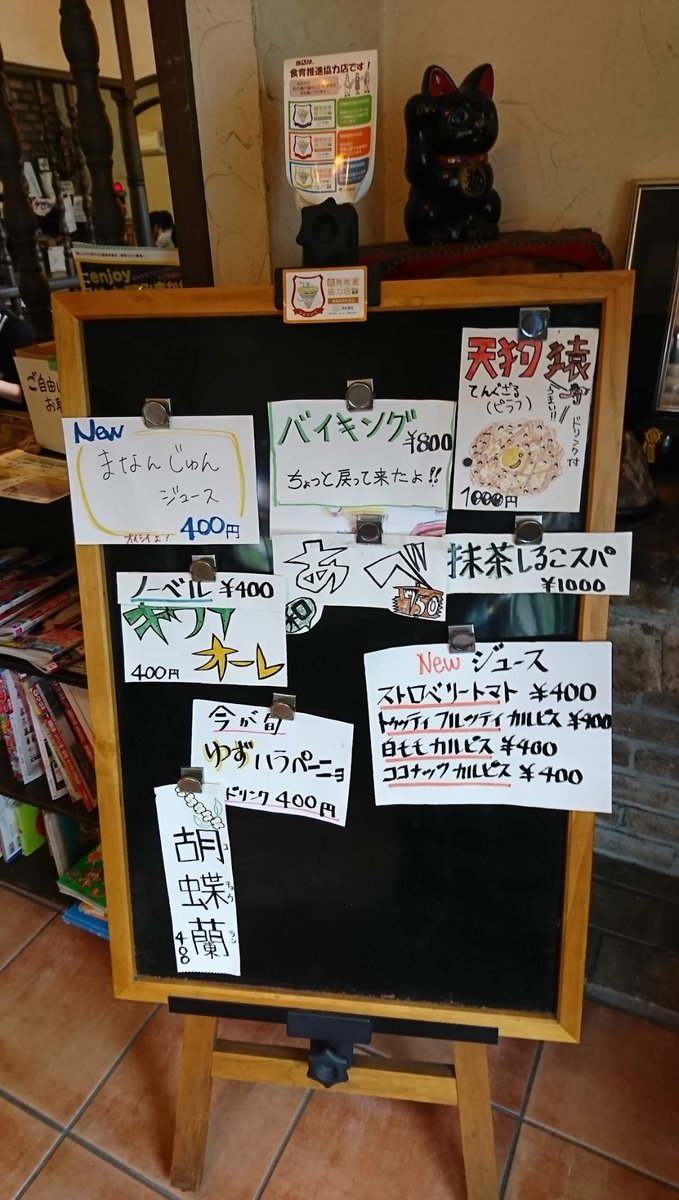 当店は、
食育推進協力店です！
enjoy
ご自由に
食育推進
協力店
天狗猿
てんぐざる
(ピラフ)
うまい!!
ドリンク付
1000円
New
まなんじゅん
ジュース
オイシイよ!
400円
バイキング
¥800
ちょっと戻って来たよ!!
あべ
和
750
抹茶しるこスパ
¥1000
ノーベル ¥400
キウイ
オーレ
400円
New ジュース
ストロベリートマト ¥400
トゥッティ フルッティ カルピス ¥400
白もも カルピス ¥400
ココナッツ カルピス ¥400
今が旬
ゆず ハラペーニョ
ドリンク 400円
胡蝶蘭
コチョウラン
400